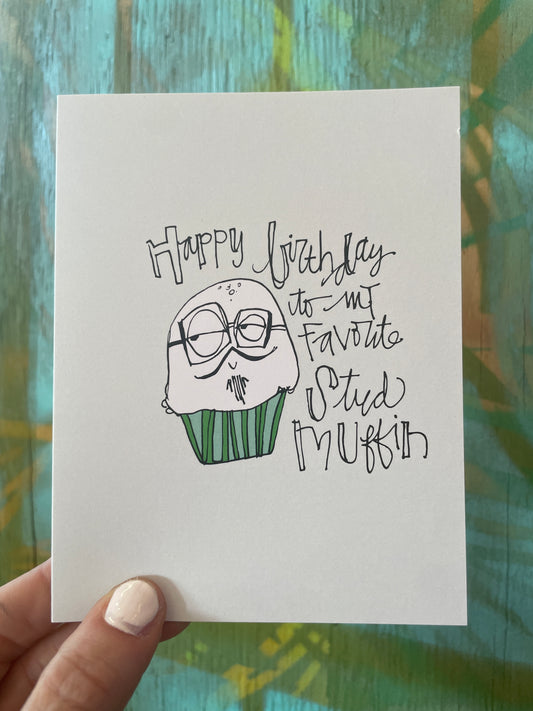 Happy birthday
to my
favorite
Stud
Muffin